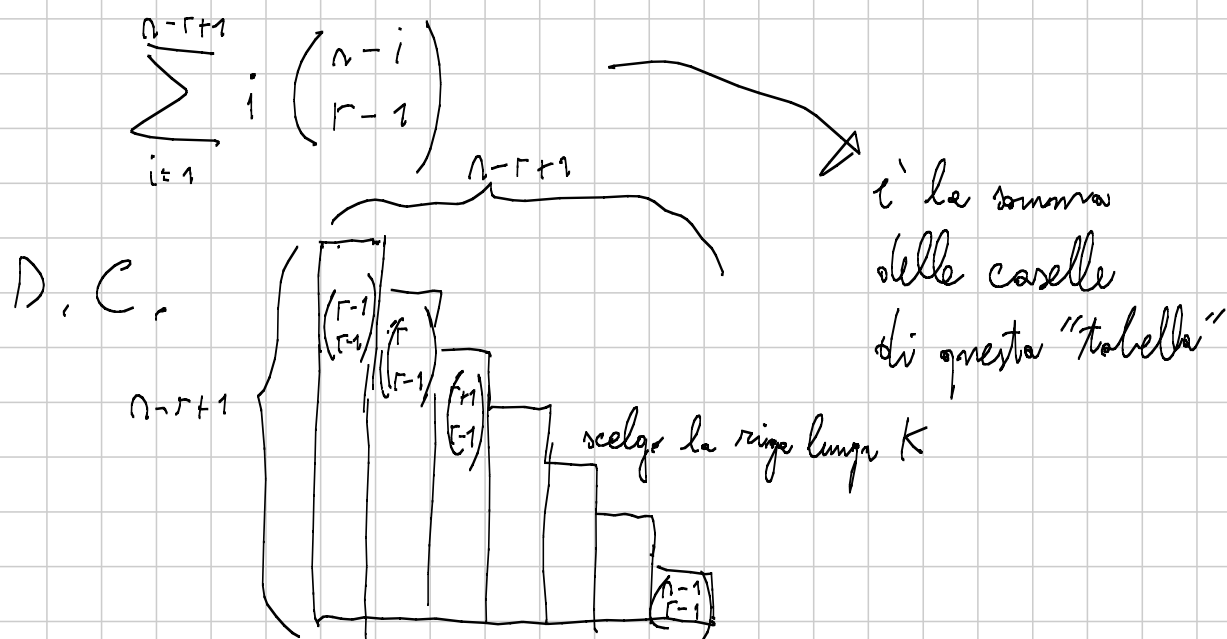 n-r+1
∑ i (n-i r-1)
i=1
n-r+1
è la somma
delle caselle
di questa "tabella"
D.C.
(r-1 r-1) (r r-1) (r+1 r-1)
n-r+1
scelgo la riga lunga K
(n-1 r-1)